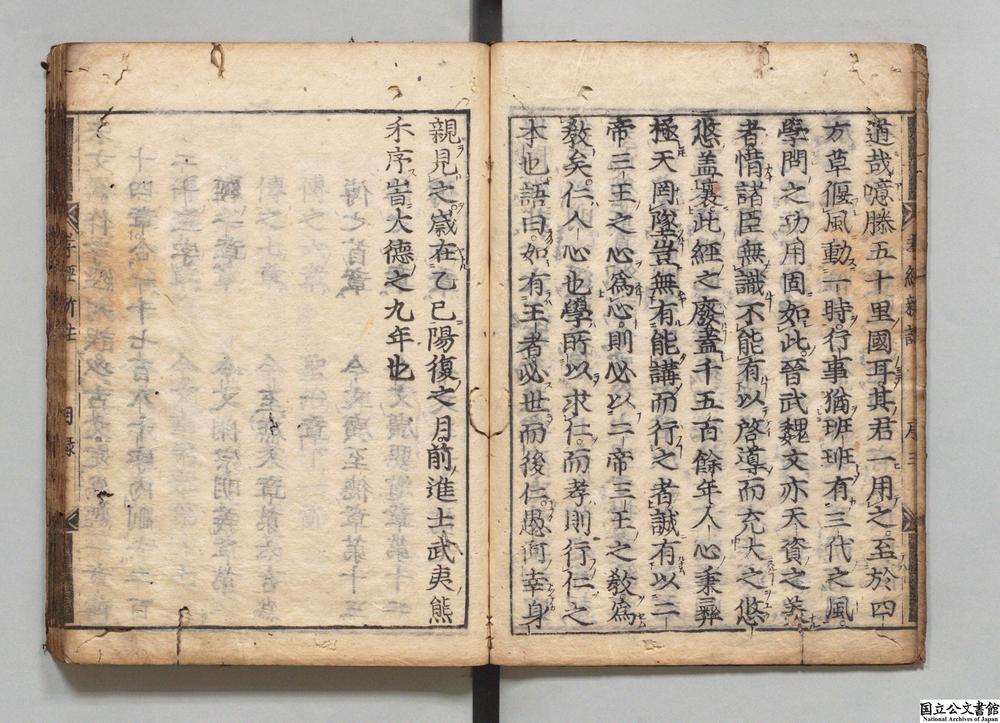 道哉噫滕五十里國耳其君一用之至於四
方草偃風動一時行事猶班班有三代之風
學問之功用固如此晉武魏文亦天資之美
者惜諸臣無識不能有以啓導而充大之悠
悠盖壤此經之廢蓋千五百餘年人心秉彛
極天罔墜豈無有能講而行之者誠有以二
帝三王之心爲心則必以二帝三王之教爲
教矣仁人心也學所以求仁而孝則行仁之
本也語曰如有王者必世而後仁愚何幸身
親見之歳在乙巳陽復之月前進士武夷熊
禾序旹大德之九年也
孝經
目録
序三
国立公文書館
National Archives of Japan